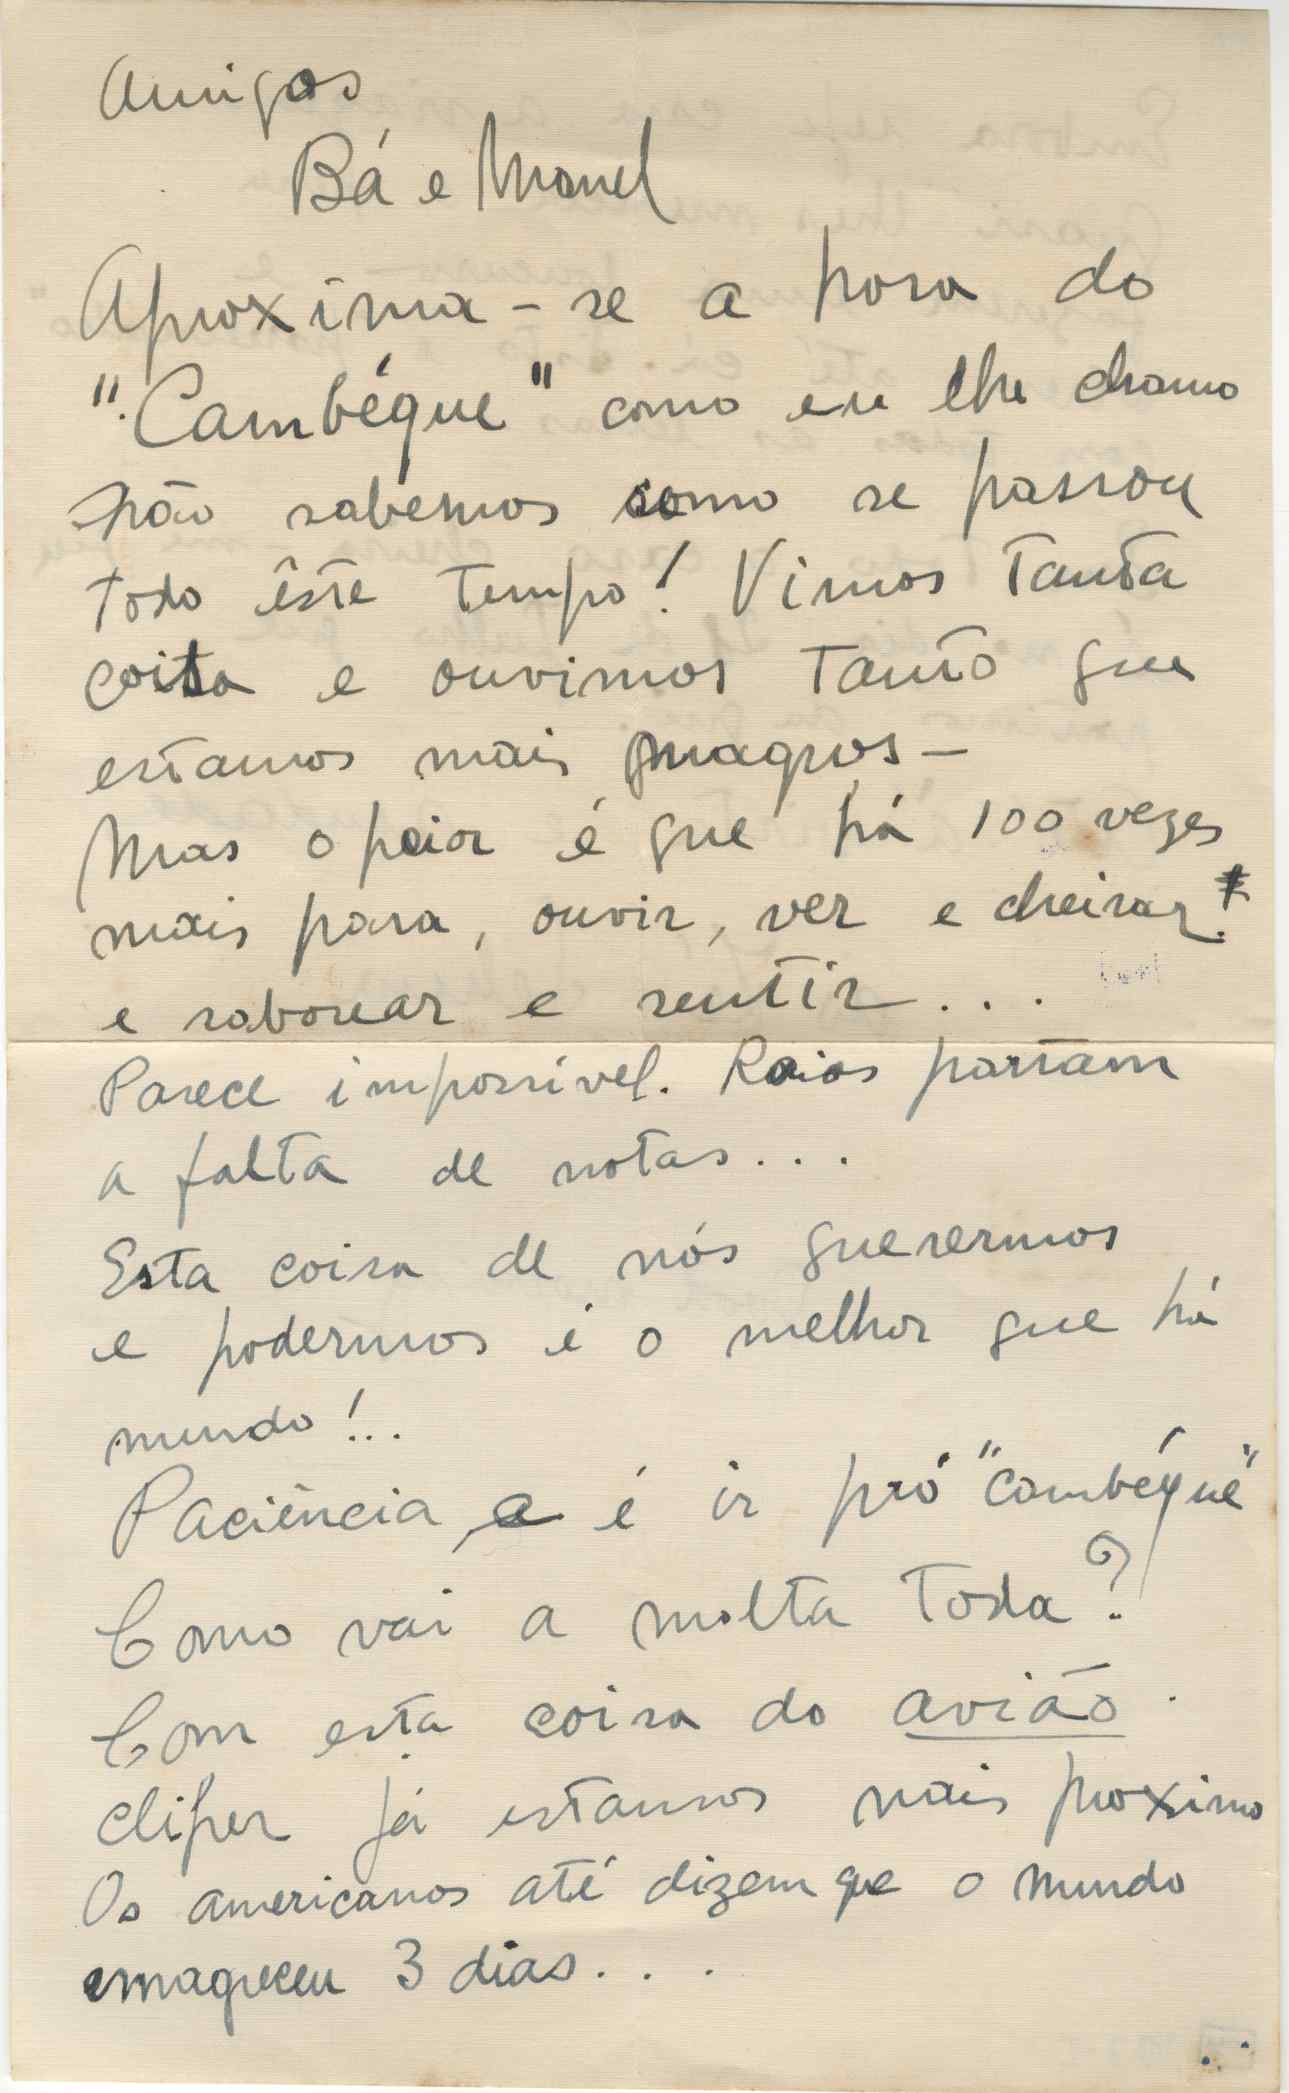 Amigos
Bá e Manel
Aproxima-se a hora do
"Cambéque" como eu lhe chamo
não sabemos como se passou
todo êste tempo! Vimos tanta
coisa e ouvimos tanto que
estamos mais magros -
Mas o peior é que há 100 vezes
mais para, ouvir, ver e cheirar
e saborear e sentir...
Parece impossível. Raios partam
a falta de notas...
Esta coisa de nós querermos
e podermos é o melhor que há
mundo!..
Paciência é ir pró "cambéque"
Como vai a malta toda?
Com esta coisa do avião
cliper já estamos mais proximo
Os americanos até dizem que o mundo
emagreceu 3 dias...